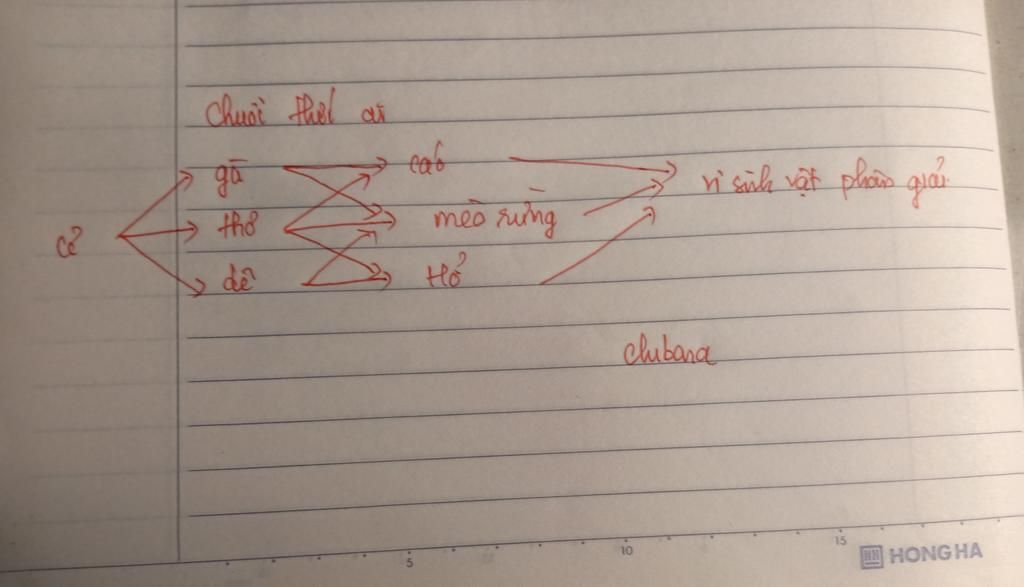 chuỗi thức ăn
gà cáo
cỏ thỏ mèo rừng vi sinh vật phân giải
dê Hổ
chubana
5 10 15
HONG HA